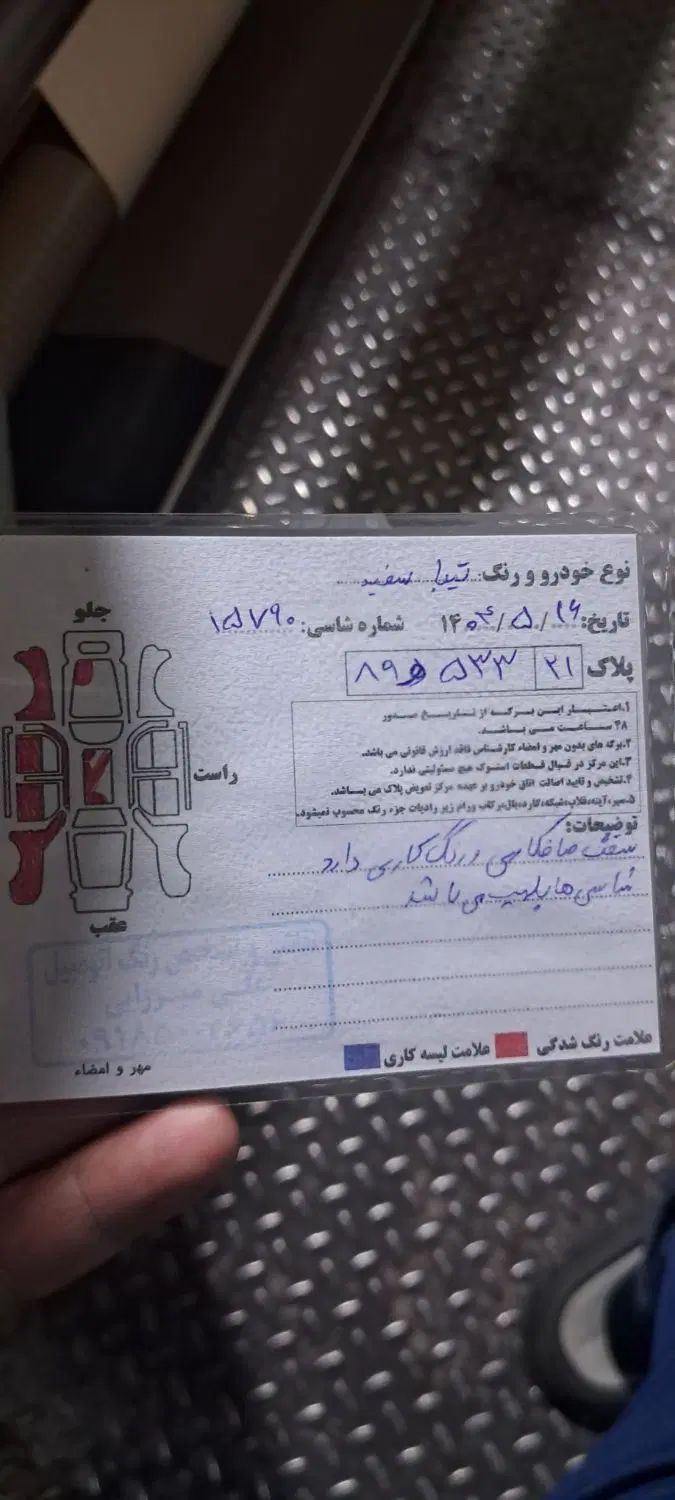 نوع خودرو و رنگ: تیبا سفید
تاریخ: ۱۶/۵/۱۴۰۴ شماره شاسی: ۱۵۷۹۰
پلاک ۲۱ ۵۳۳ ۸۹
۱.اعتبار این برگه از تاریخ صدور
۴۸ ساعت می باشد.
۲.برگه های بدون مهر و امضاء کارشناس فاقد ارزش قانونی می باشد.
۳.این مرکز در قبال قطعات استوک هیچ مسئولیتی ندارد.
۴.تشخیص و تایید اصالت اتاق خودرو بر عهده مرکز تعویض پلاک می باشد.
۵.سپر،آینه،قلاب،شبکه،کاردبال،رکاب ورام زیر رادیات جزء رنگ محسوب نمیشود.
توضیحات:
سقف صافکاری و رنگ کاری دارد
شاسی ها پلمپ می باشد
جلو
راست
عقب
تشخیص رنگ اتومبیل
علی میرزایی
علامت رنگ شدگی
علامت لیسه کاری
مهر و امضاء